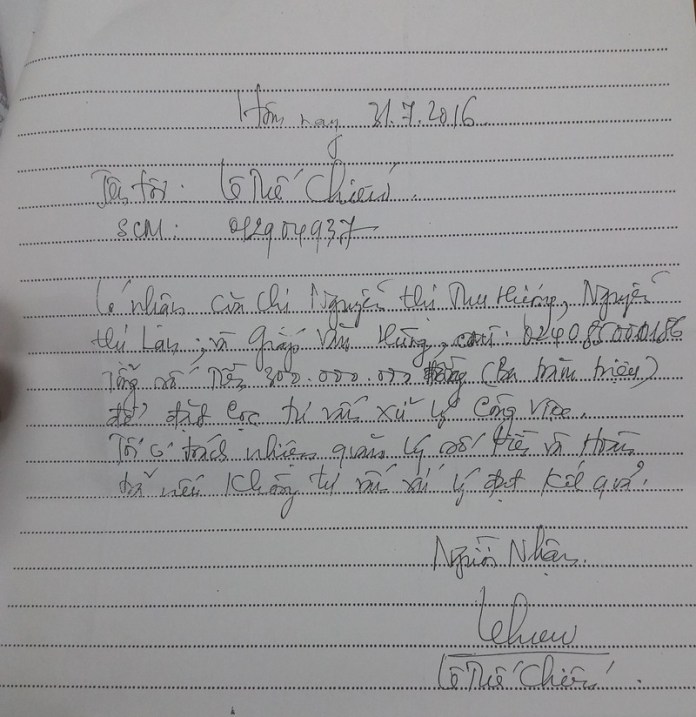 Hôm nay 31.7.2016
Tên tôi: Lê Thế Chiến
SCM: 012904937
Có nhận của chị Nguyễn thị Thu Hương, Nguyễn
thị Lan, và Giáp Văn Hùng, cmt: 024085000186
Tổng số Tiền 300.000.000 đồng (Ba trăm triệu)
để đặt cọc tư vấn xử lý công việc.
Tôi có trách nhiệm quản lý số tiền và Hoàn
trả nếu không tư vấn xử lý đạt kết quả.
Người Nhận
Chien
Lê Thế Chiến